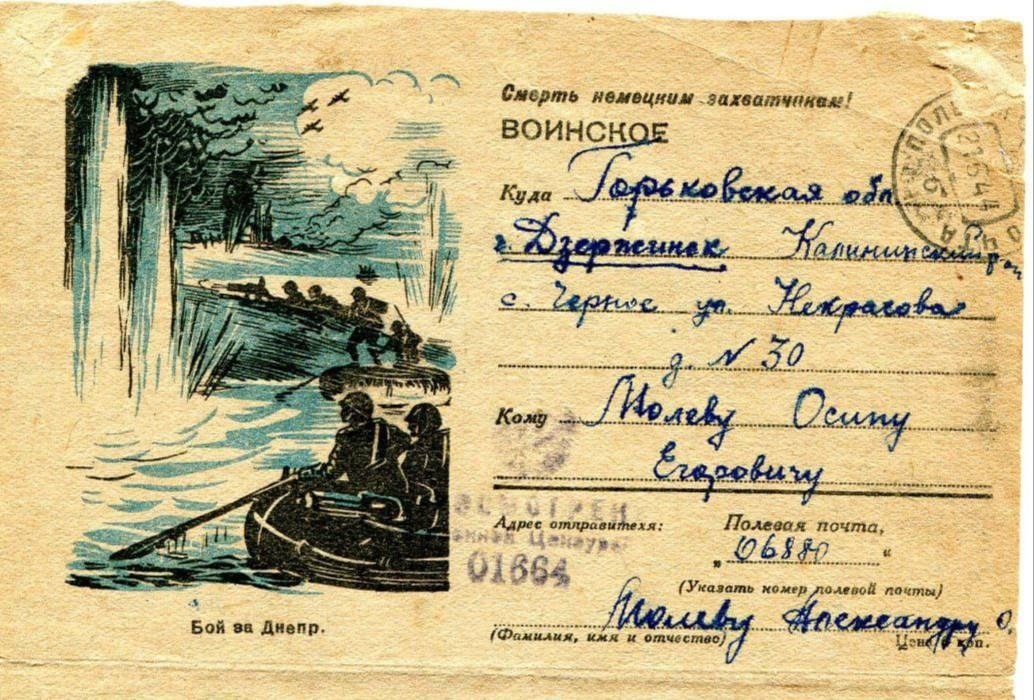 Смерть немецким захватчикам!
ВОИНСКОЕ
Куда Горьковская обл
г. Дзержинск Калининский
с. Черное ул. Некрасова
д. N 30
Кому Молеву Осипу
Егоровичу
Адрес отправителя: Полевая почта,
„06880“
(Указать номер полевой почты)
Молеву Александру О.
(Фамилия, имя и отчество)
Цена коп.
01664
Бой за Днепр.